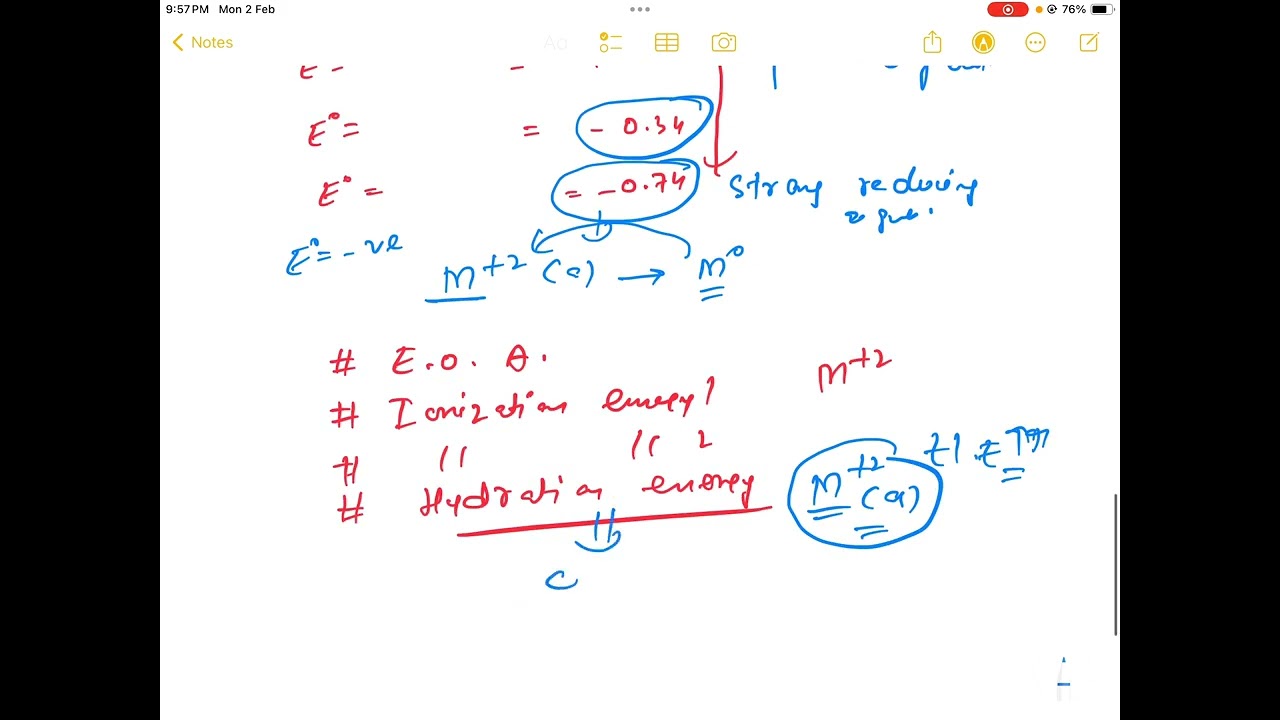 9:57 PM Mon 2 Feb
76%
Notes
Aa
E° = = - 0.34
E° = = - 0.74 Strong reducing
E° = - ve
M+2 (a) → M°
# E.O.A.
# Ionization energy 1 M+2
# " " 2
M+2 (a)
# Hydration energy
C